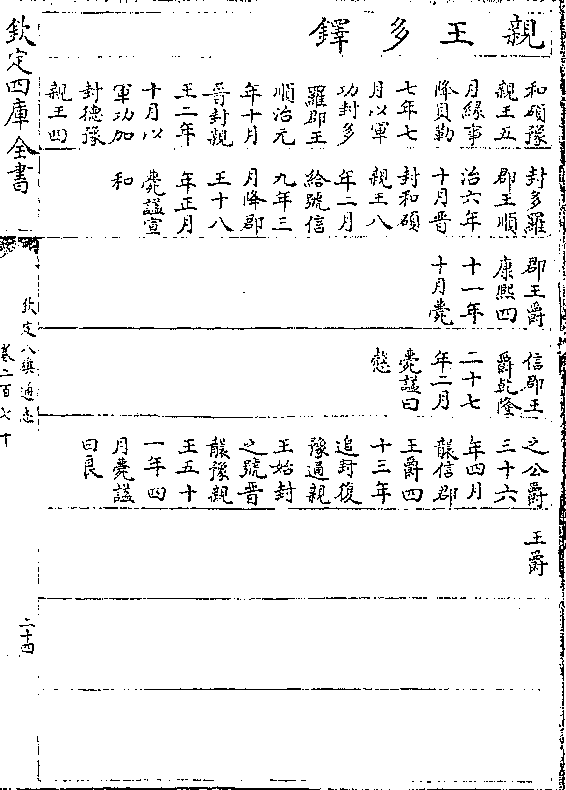 親王多鐸
和碩豫
親王五
月緣事
降貝勒
七年七
月以軍
功封多
羅郡王
順治元
年十月
晉封親
王二年
十月以
軍功加
封德豫
親王四
封多羅
郡王順
治六年
十月晉
封和碩
親王八
年二月
給號信
九年三
月降郡
王十八
年正月
薨謚宣
和
郡王爵
康熙四
十一年
十月薨
信郡王
爵乾隆
二十七
年二月
薨謚曰
慤
之公爵
三十六
年四月
襲信郡
王爵四
十三年
追封復
豫通親
王始封
之號晉
襲豫親
王五十
一年四
月薨謚
曰良
王爵
欽定四庫全書
欽定八旗通志
卷二百七十
二十四